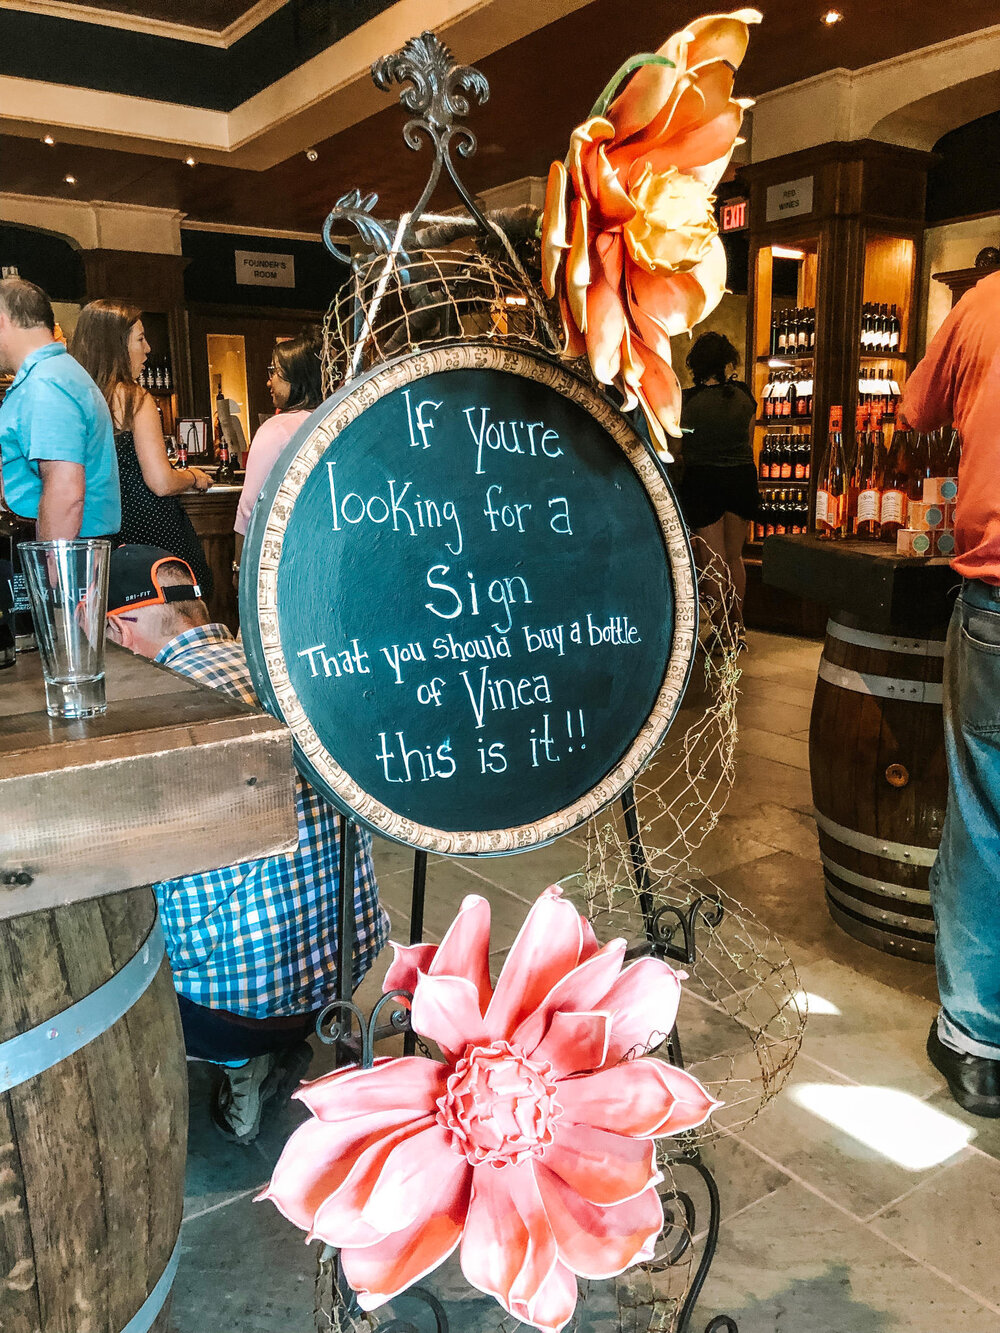 FOUNDER'S
ROOM
EXIT
RED
WINES
If you're
looking for a
Sign
That you should buy a bottle
of Vinea
this is it!!
DRI-FIT